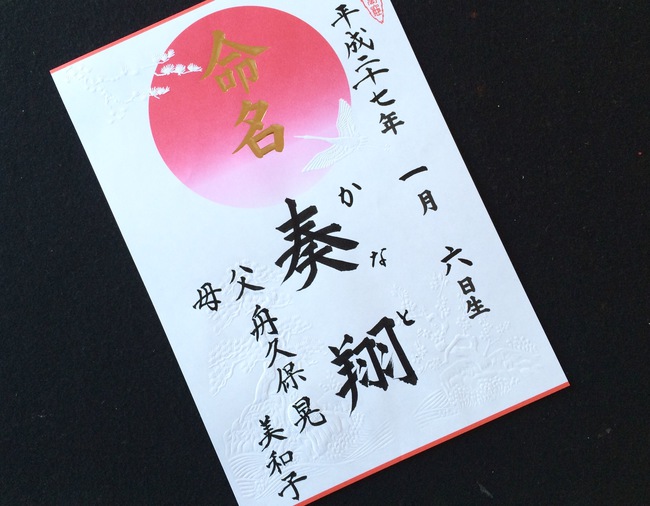 命名
平成二十七年
一月
六日生
かなと
奏翔
父 舟久保晃
母 美和子